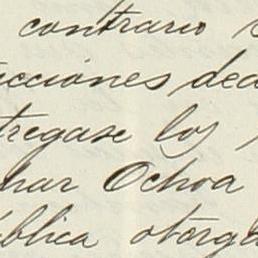 contrario
cciones ded
tregase los
har Ochoa
ública otorga